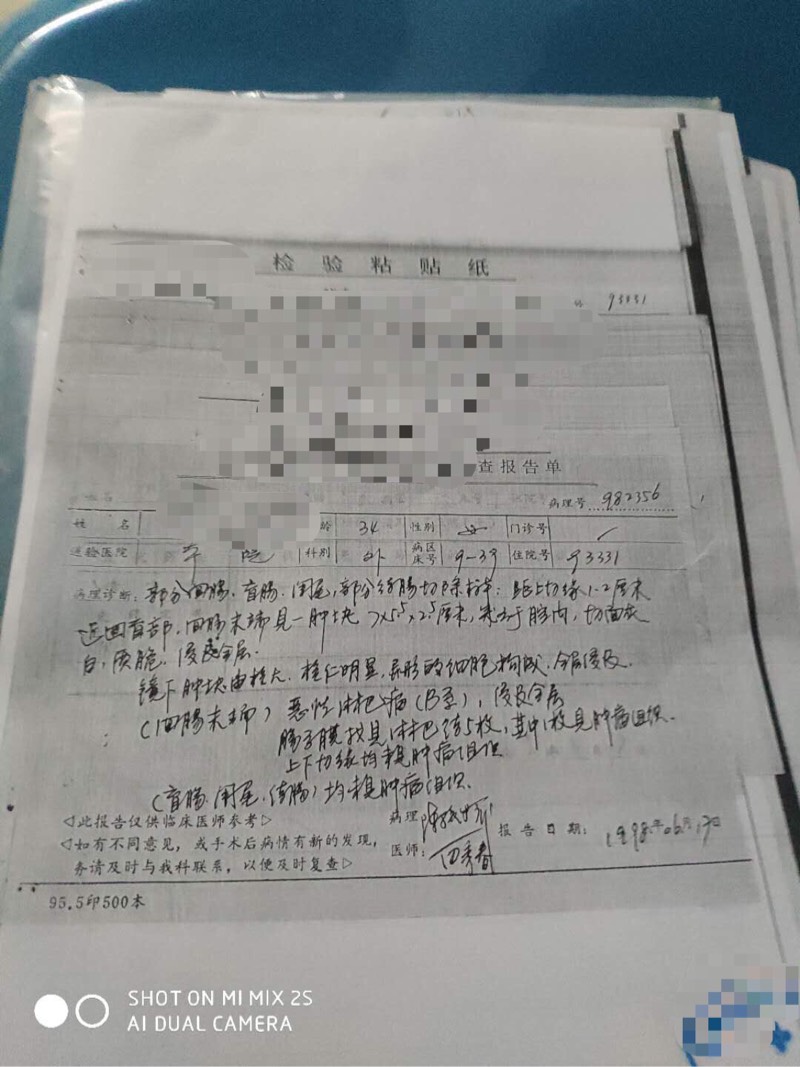 检验粘贴纸
93331
查报告单
病理号 982356
姓名 龄 34 性别 女 门诊号
送验医院 本院 科别 外 病区床号 9-39 住院号 93331
病理诊断: 部分回肠、盲肠、阑尾、部分结肠切除标本: 距上切缘1.2厘米
近回盲部,回肠末端见一肿块7×5.5×2.5厘米,突于肠内,切面灰
白,质脆,侵及全层.
镜下肿块由核大,核仁明显,异形的细胞构成,全层侵及.
(回肠末端) 恶性淋巴瘤 (B型), 侵及全层
肠系膜找见淋巴结5枚,其中1枚见肿瘤组织.
上下切缘均未见肿瘤组织
(盲肠.阑尾.结肠) 均未见肿瘤组织.
◁此报告仅供临床医师参考▷
◁如有不同意见,或手术后病情有新的发现,
务请及时与我科联系,以便及时复查▷
病理医师: 田秀春
报告日期: 1998年06月17日
95.5印500本
SHOT ON MI MIX 2S
AI DUAL CAMERA